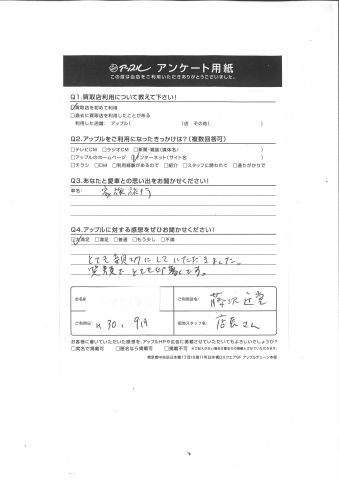 アップル アンケート用紙
この度は当店をご利用いただきありがとうございました。
Q1.買取店利用について教えて下さい!
☑買取店を初めて利用
□過去に買取店を利用したことがある
利用した店舗: アップル( )店 その他( )
Q2.アップルをご利用になったきっかけは?(複数回答可)
□テレビCM □ラジオCM □新聞・雑誌(媒体名: )
□アップルのホームページ ☑インターネット(サイト名 )
□チラシ □DM □利用経験があるので □紹介 □スタッフに誘われて □通りがかりで
Q3.あなたと愛車との思い出をお聞かせください!
車名: 家族旅行
Q4.アップルに対する感想をぜひお聞かせください!
☑大満足 □満足 □普通 □もう少し □不満
とても親切にしていただきました。
笑顔でとても印象的です。
お名前
ご利用店名: 藤沢辻堂
ご利用日: H30. 9月
担当スタッフ名: 店長さん
お客様に書いていただいた感想を、アップルHPや広告に掲載させていただいてもよろしいでしょうか?
□実名で掲載可 □匿名なら掲載可 □掲載不可